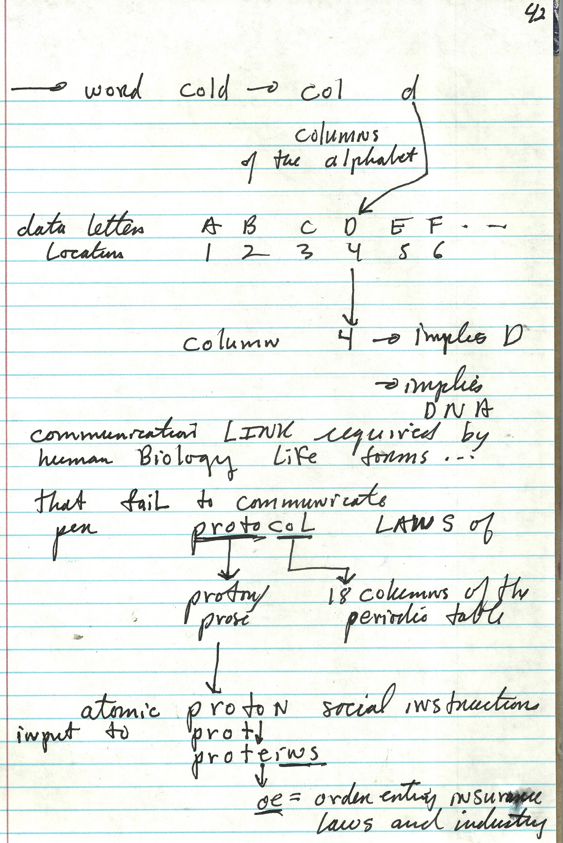 42
→ word cold → col d
columns
of the alphabet
data letters A B C D E F . . —
Location 1 2 3 4 5 6
column 4 → implies D
→ implies
DNA
communication LINK required by
human Biology Life forms ...
that fail to communicate
per protocol LAWS of
proton/ 18 columns of the
prose periodic table
atomic protoN social instructions
input to prot
proteins
oe = order entry insurance
laws and industry